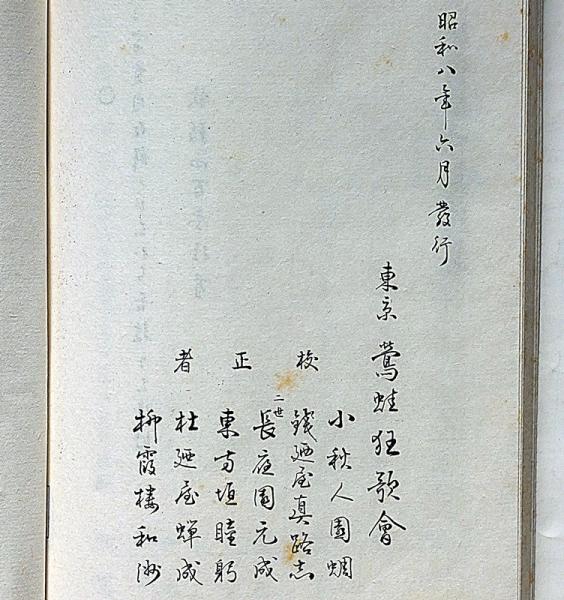 昭和八年六月發行
東京鶯蛙狂歌會
校正者
小秋人園蜩
錢廼屋真路志
二世長庭園元成
東方垣瞳躬
杜廼屋蝉成
柳霞樓和洲